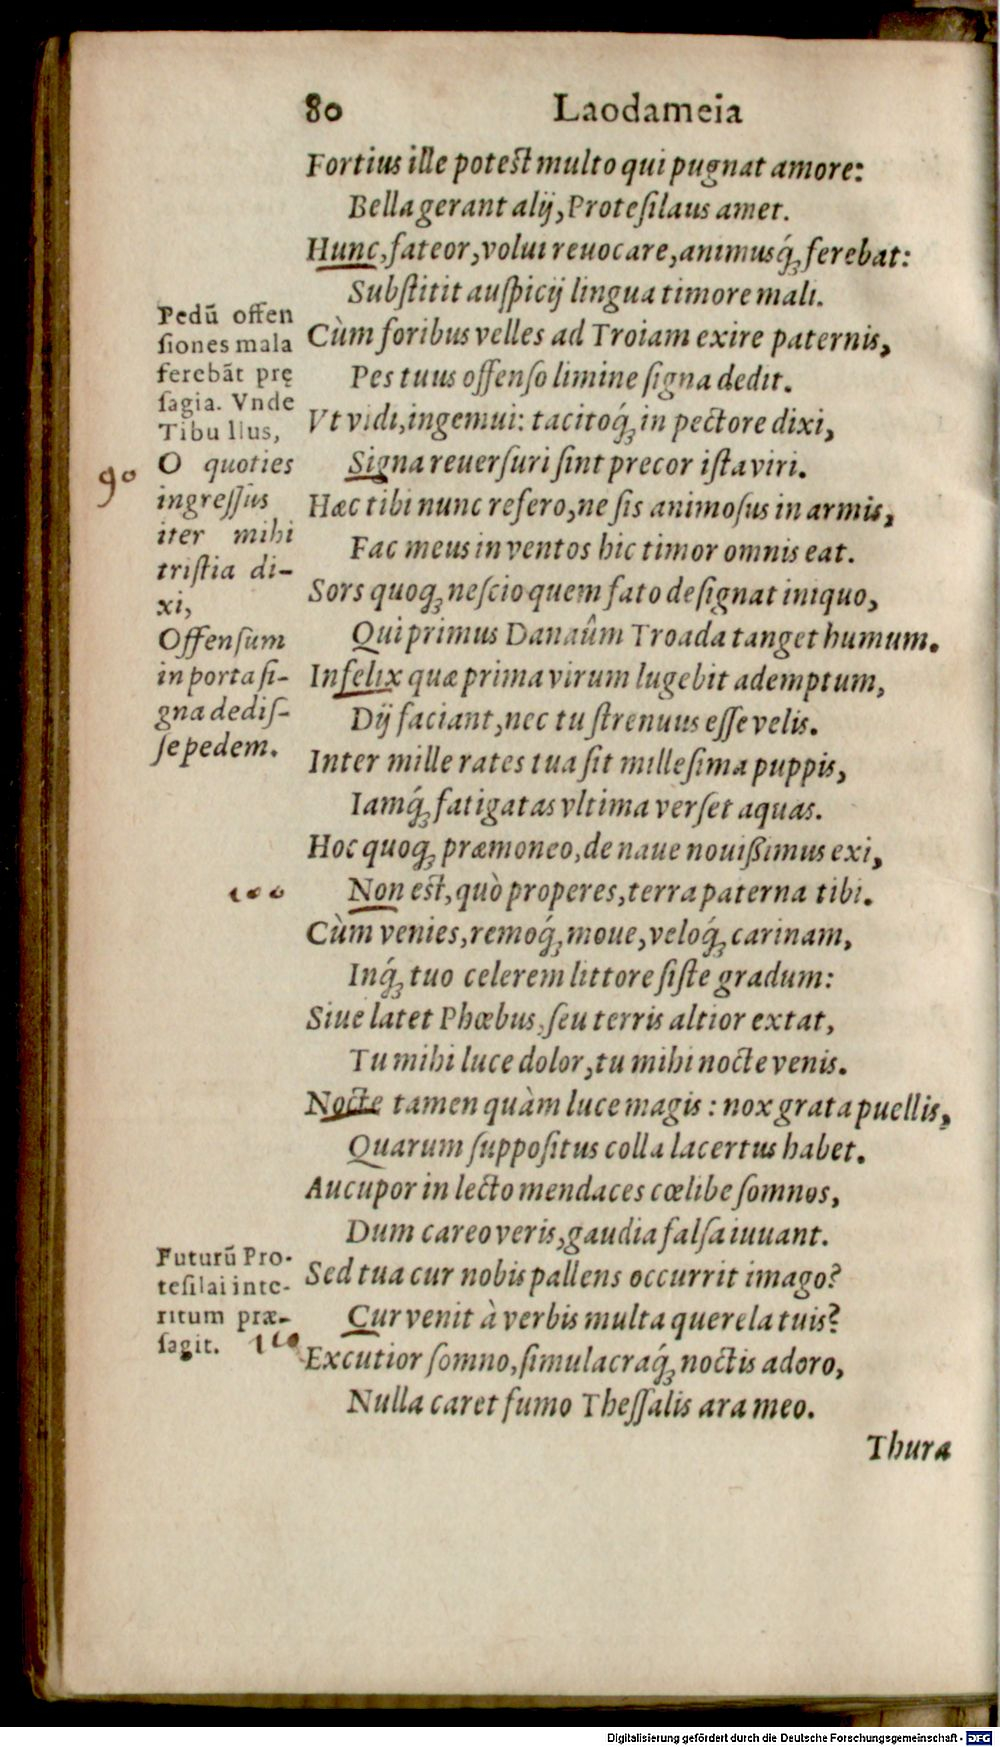 80 Laodameia
Fortius ille potest multo qui pugnat amore:
Bella gerant alij, Protesilaus amet.
Hunc, fateor, volui reuocare, animusq́; ferebat:
Substitit auspicij lingua timore mali.
Cùm foribus velles ad Troiam exire paternis,
Pes tuus offenso limine signa dedit.
Vt vidi, ingemui: tacitoq́; in pectore dixi,
Signa reuersuri sint precor ista viri.
Hæc tibi nunc refero, ne sis animosus in armis,
Fac meus in ventos hic timor omnis eat.
Sors quoq; nescio quem fato designat iniquo,
Qui primus Danaûm Troada tanget humum.
Infelix quæ prima virum lugebit ademptum,
Dij faciant, nec tu strenuus esse velis.
Inter mille rates tua sit millesima puppis,
Iamq́; fatigatas vltima verset aquas.
Hoc quoq; præmoneo, de naue nouißimus exi,
Non est, quò properes, terra paterna tibi.
Cùm venies, remoq́; moue, veloq́; carinam,
Inq́; tuo celerem littore siste gradum:
Siue latet Phœbus, seu terris altior extat,
Tu mihi luce dolor, tu mihi nocte venis.
Nocte tamen quàm luce magis: nox grata puellis,
Quarum suppositus colla lacertus habet.
Aucupor in lecto mendaces cœlibe somnos,
Dum careo veris, gaudia falsa iuuant.
Sed tua cur nobis pallens occurrit imago?
Cur venit à verbis multa querela tuis?
Excutior somno, simulacraq́; noctis adoro,
Nulla caret fumo Thessalis ara meo.
Thura
Pedũ offen
siones mala
ferebãt prę
sagia. Vnde
Tibullus,
O quoties
ingressus
iter mihi
tristia di-
xi,
Offensum
in porta si-
gna dedis-
se pedem.
90
100
Futurũ Pro-
tesilai inte-
ritum præ-
sagit. 110
Digitalisierung gefördert durch die Deutsche Forschungsgemeinschaft - DFG